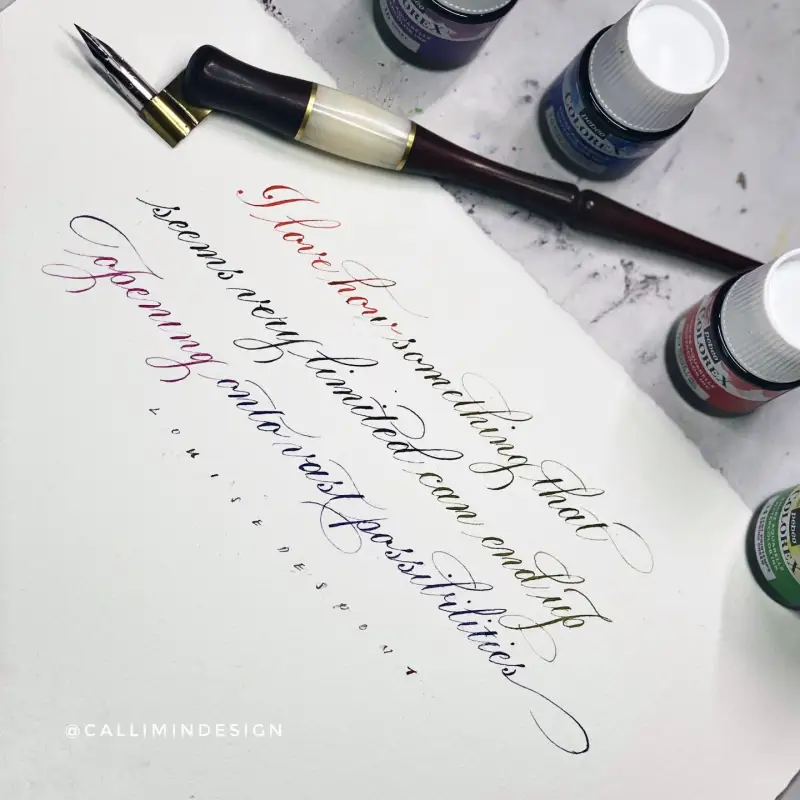 I love how something that
seems very limited can end up
opening onto vast possibilities
LOUISE DESPONT
@CALLIMINDESIGN
pebeo
COLOREX
pebeo
COLOREX
pebeo
COLOREX
COLOREX